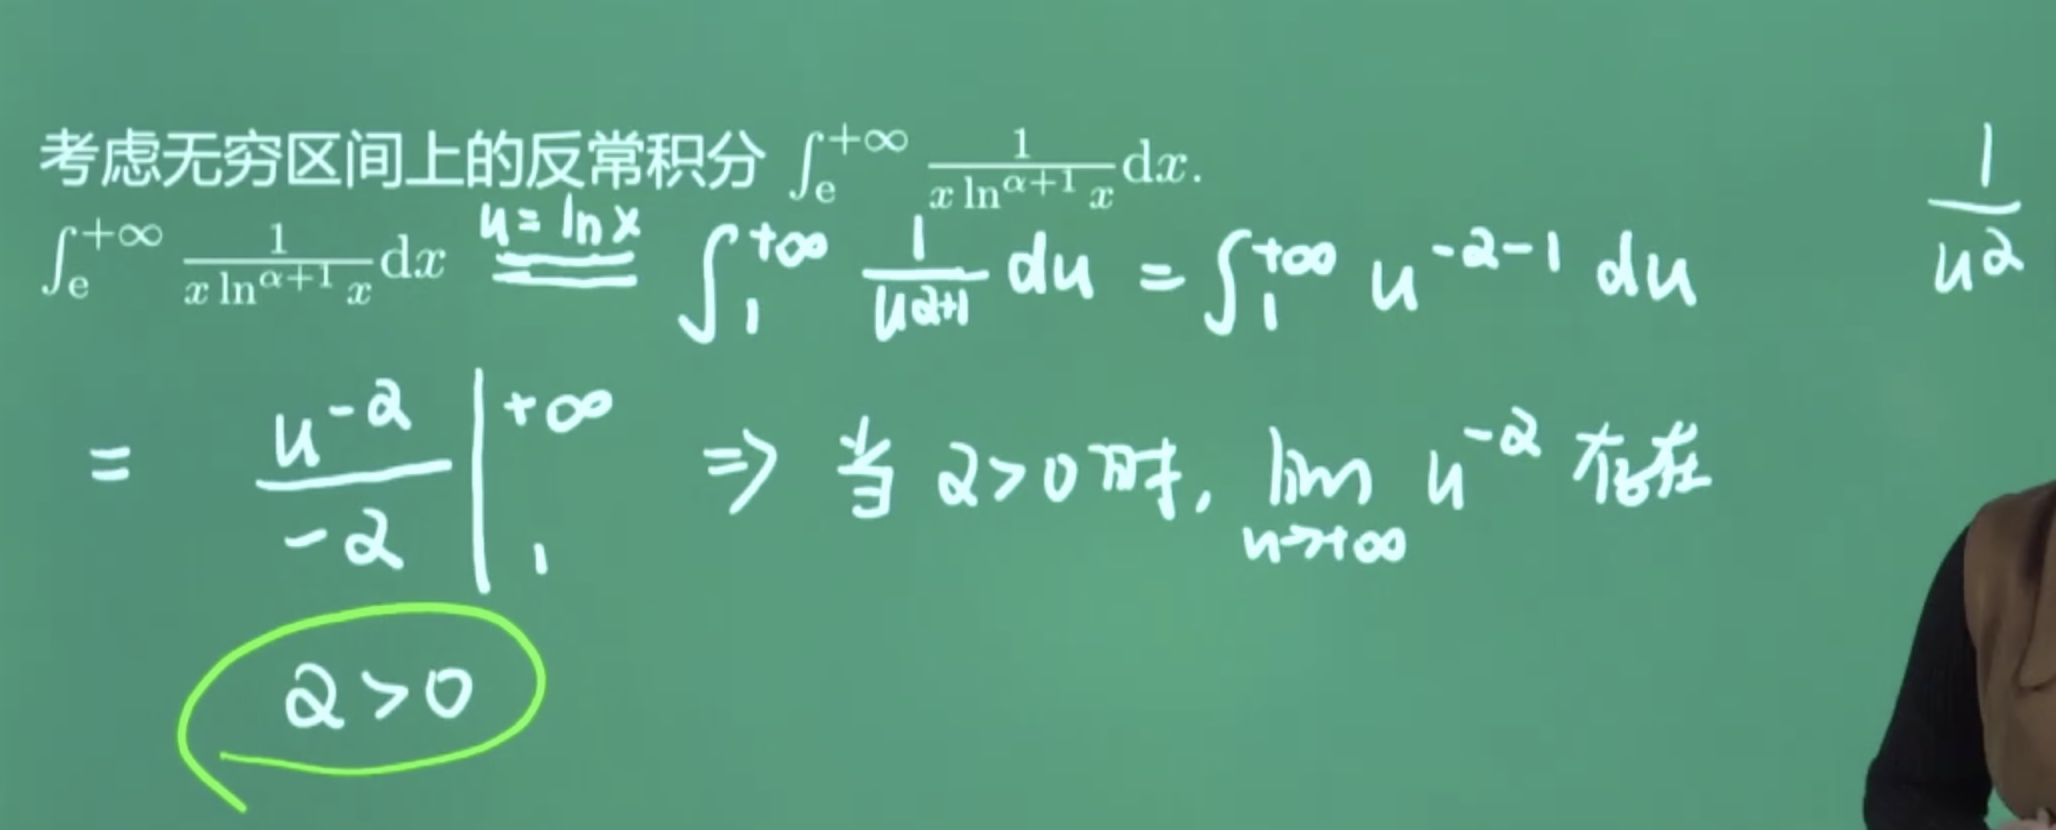 考虑无穷区间上的反常积分 ∫_e^{+∞} \frac{1}{x ln^{α+1} x} dx.
∫_e^{+∞} \frac{1}{x ln^{α+1} x} dx \overset{u = ln x}{=} ∫_1^{+∞} \frac{1}{u^{α+1}} du = ∫_1^{+∞} u^{-α-1} du
\frac{1}{u^α}
= \frac{u^{-α}}{-α} |_1^{+∞} ⇒ 当 α>0 时, lim_{u→+∞} u^{-α} 存在
α>0